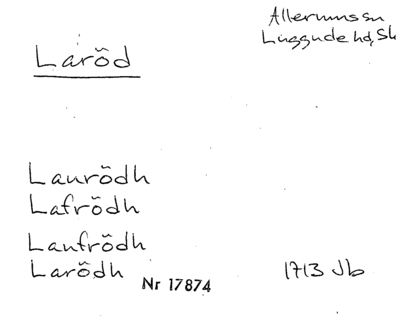 Allerums sn
Luggude hd, Sk
Laröd
Laurödh
Lafrödh
Laufrödh
Larödh
Nr 17874
1713 Jb